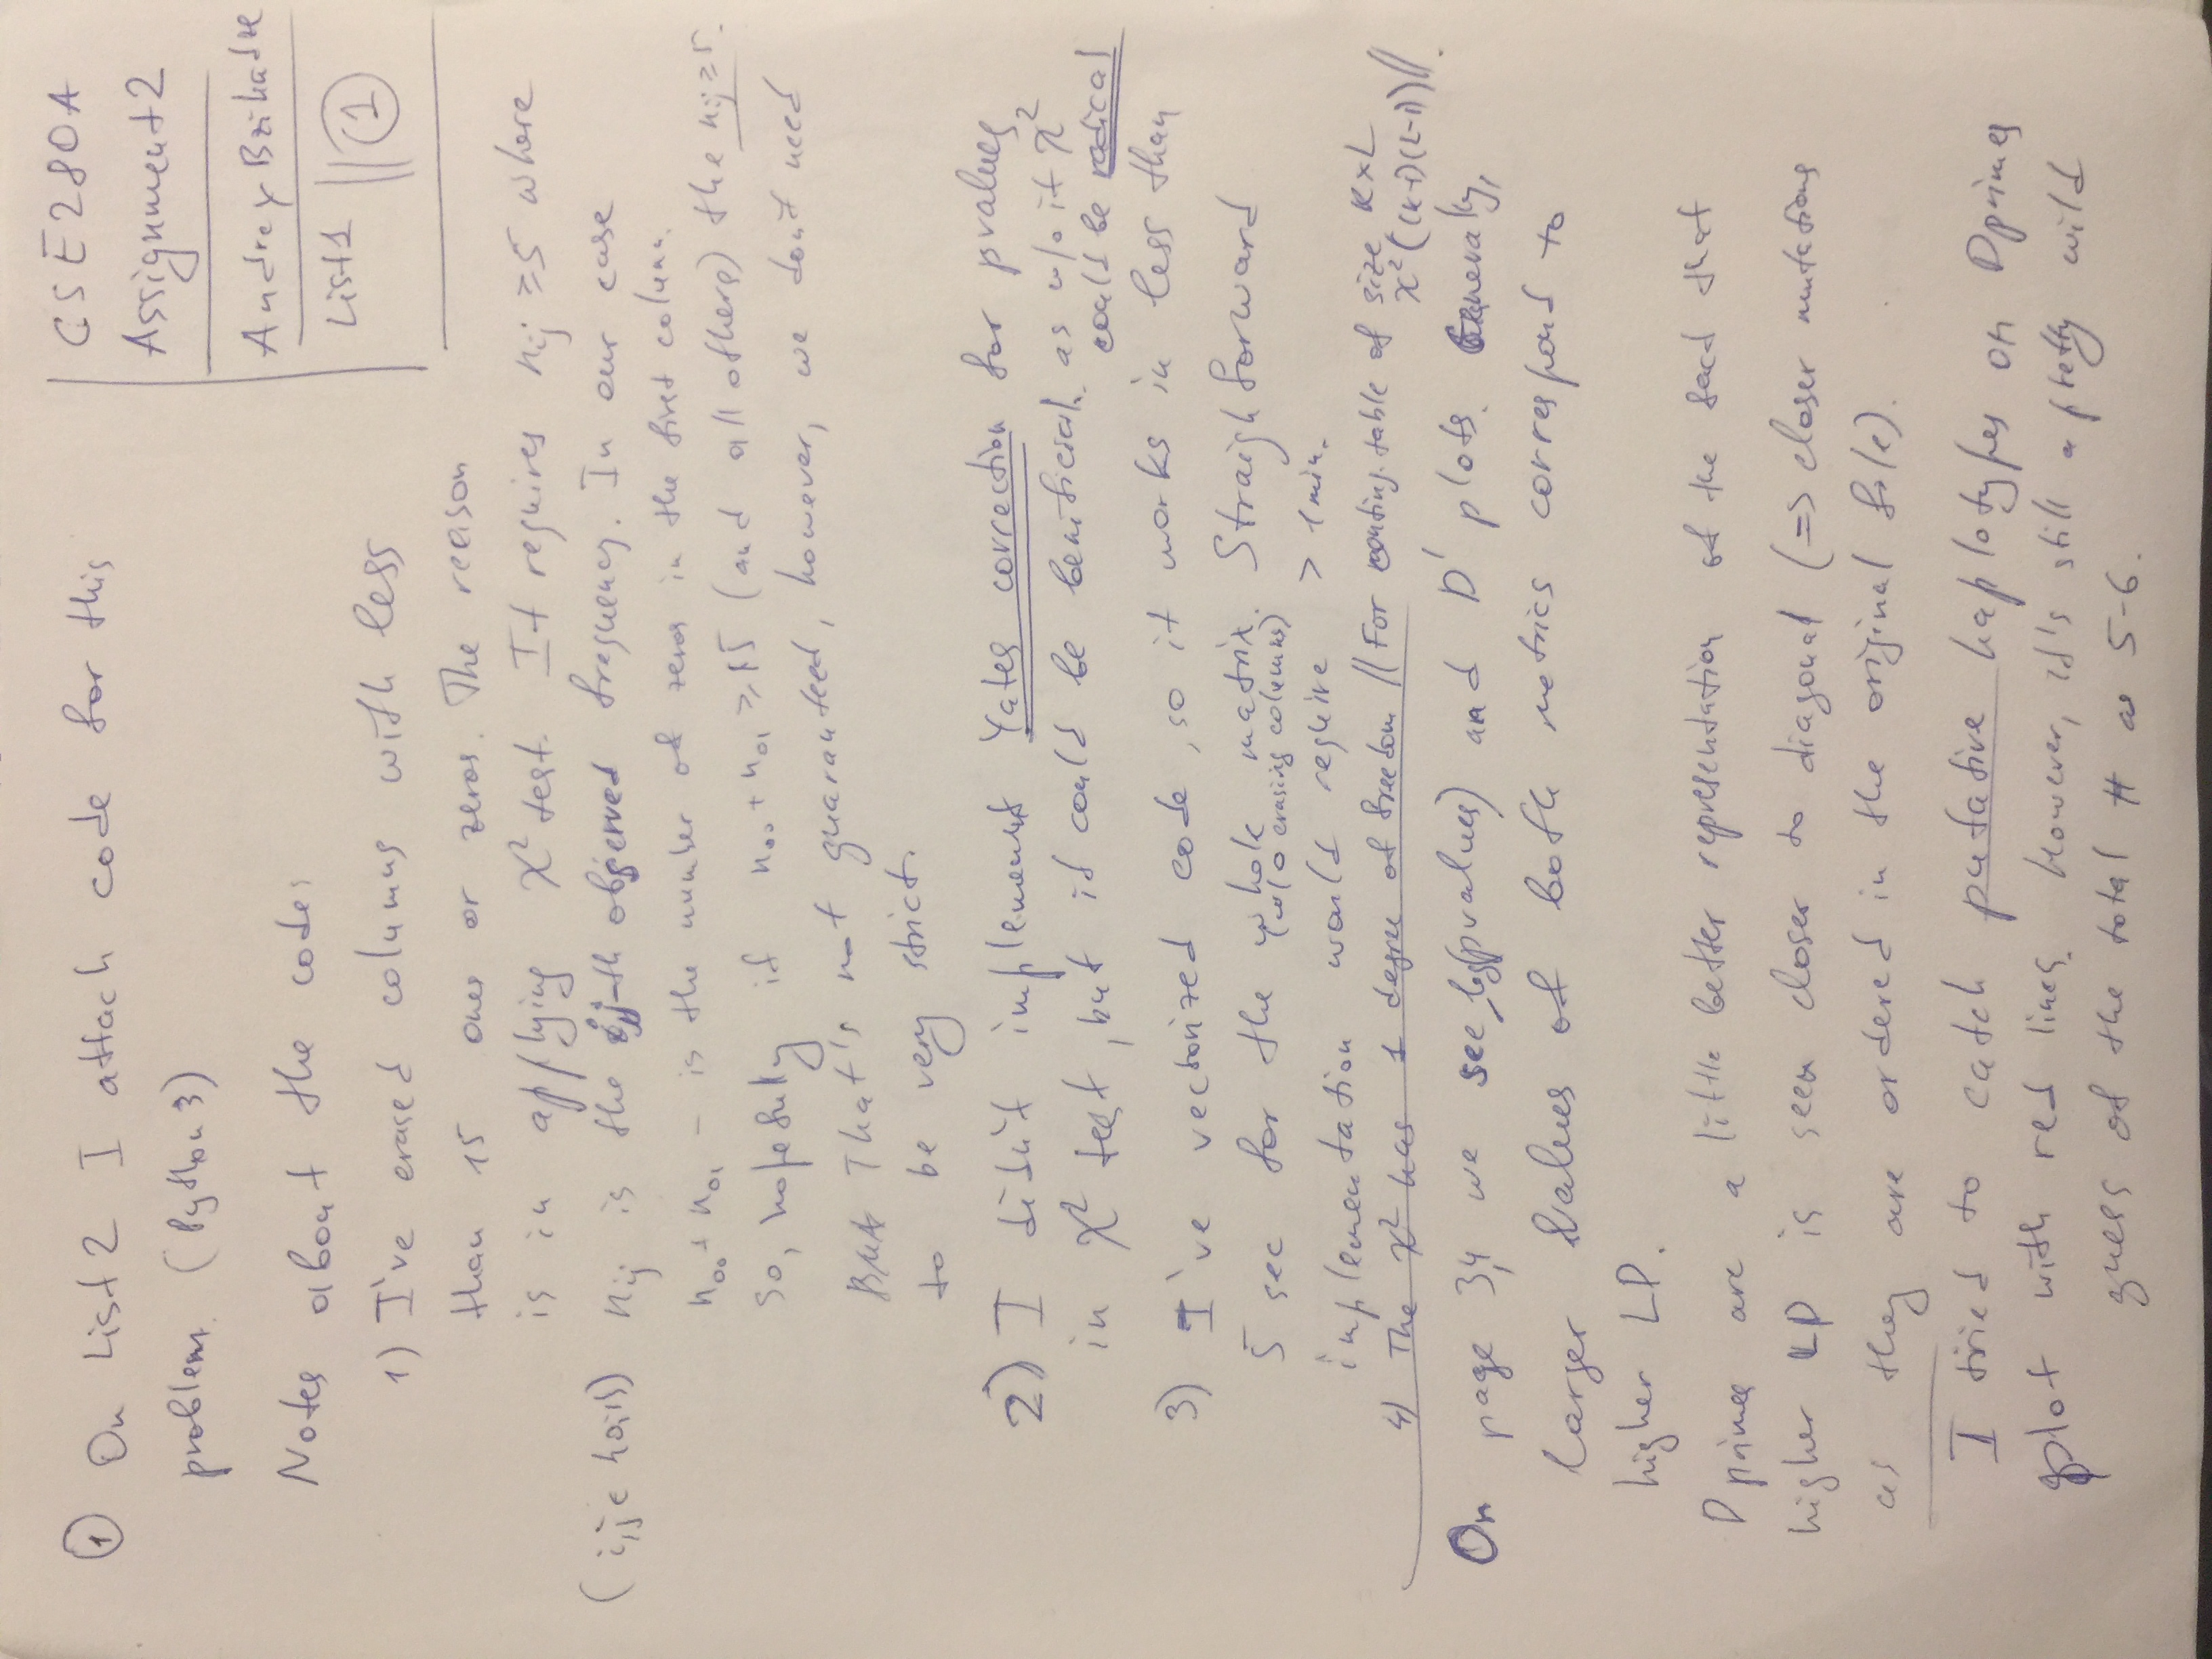 CSE280A
Assignment 2
Andrey Bzikadze
List 1 || ①
① On List 2 I attach code for this
problem. (Python 3)
Notes about the code:
1) I've erased columns with less
than 15 ones or zeros. The reason
is in applying χ² test. It requires n_ij ≥ 5 where
(i,j ∈ {0,1}) n_ij is the ij-th observed frequency. In our case
n₀₀ + n₀₁ - is the number of zeros in the first column.
so, hopefully if n₀₀ + n₀₁ ≥ 15 (and all others) the n_ij ≥ 5.
But That's not guaranteed, however, we don't need
to be very strict.
2) I didn't implement Yates correction for pvalues
in χ² test, but it could be beneficial. as w/o it χ²
could be radical
3) I've vectorized code, so it works in less than
5 sec for the whole matrix. Straighforward
(w/o erasing columns)
implementation would require > 1 min.
4) The χ² has 1 degree of freedom // For conting. table of size K×L
χ²((K-1)(L-1)) //.
On page 3,4 we see -log(pvalues) and D' plots. Generally,
larger values of both metrics correspond to
higher LD.
D primes are a little better representation of the fact that
higher LD is seen closer to diagonal (=> closer mutations
as they are ordered in the original file).
I tried to catch putative haplotypes on Dprimes
plot with red lines. However, it's still a pretty wild
guess of the total # as 5-6.